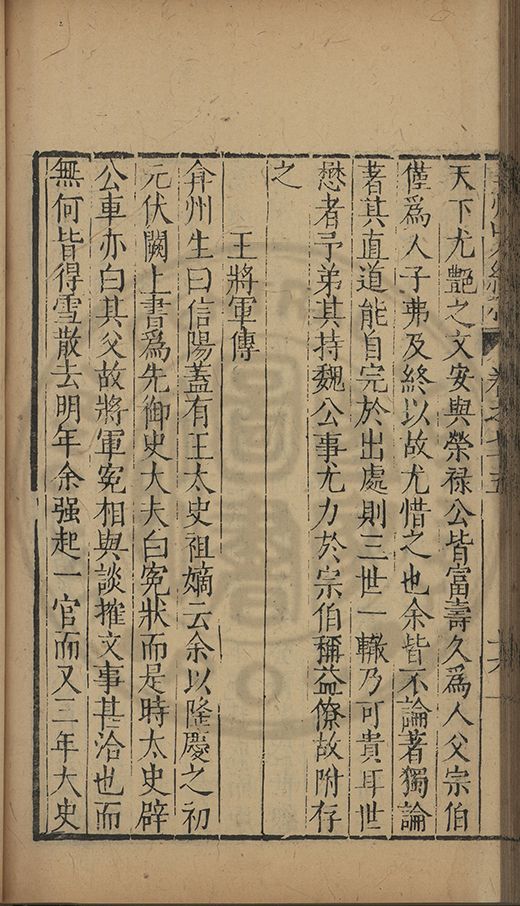 卷之七十五
天下尤艷之文安與榮祿公皆富壽久爲人父宗伯
僅爲人子弗及終以故尤惜之也余皆不論著獨論
著其直道能自完於出處則三世一轍乃可貴耳世
懋者予弟其持魏公事尤力於宗伯稱益僚故附存
之
王將軍傳
弇州生曰信陽蓋有王太史祖嫡云余以隆慶之初
元伏闕上書爲先御史大夫白冤狀而是時太史辟
公車亦白其父故將軍冤相與談摧文事甚洽也而
無何皆得雪散去明年余强起一官而又三年太史